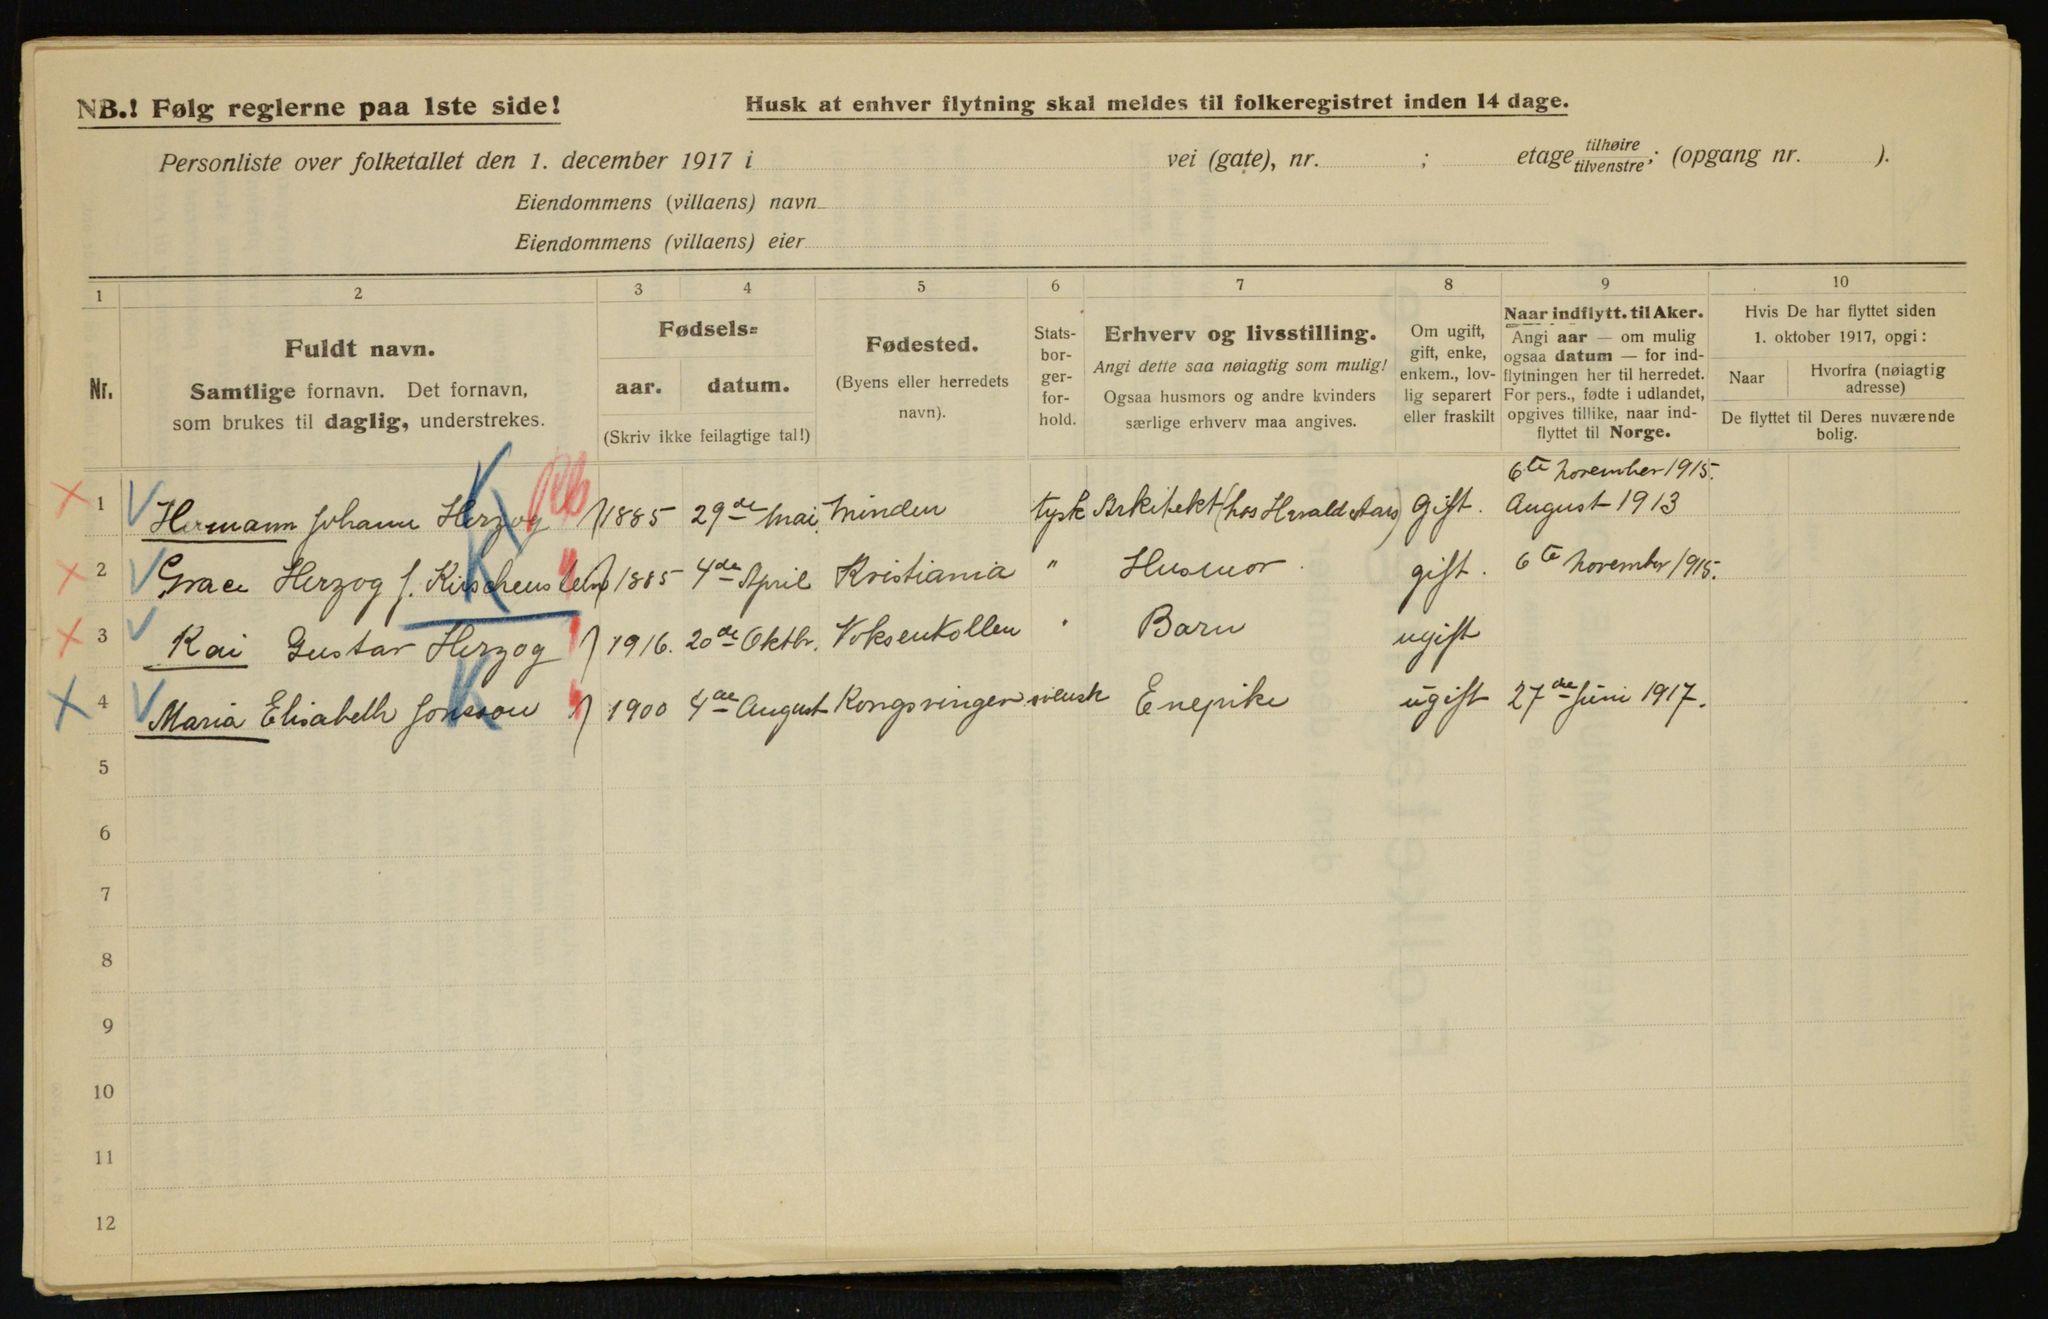 NB.! Følg reglerne paa 1ste side!
Husk at enhver flytning skal meldes til folkeregistret inden 14 dage.
Personliste over folketallet den 1. december 1917 i vei (gate), nr. ; etage tilhøire tilvenstre; (opgang nr. ).
Eiendommens (villaens) navn
Eiendommens (villaens) eier
1 2 3 4 5 6 7 8 9 10
Nr.
Fuldt navn.
Samtlige fornavn. Det fornavn,
som brukes til daglig, understrekes.
Fødsels=
aar. datum.
(Skriv ikke feilagtige tal!)
Fødested.
(Byens eller herredets
navn).
Stats-
bor-
ger-
for-
hold.
Erhverv og livsstilling.
Angi dette saa nøiagtig som mulig!
Ogsaa husmors og andre kvinders
særlige erhverv maa angives.
Om ugift,
gift, enke,
enkem., lov-
lig separert
eller fraskilt
Naar indflytt. til Aker.
Angi aar — om mulig
ogsaa datum — for ind-
flytningen her til herredet.
For pers., fødte i udlandet,
opgives tillike, naar ind-
flyttet til Norge.
Hvis De har flyttet siden
1. oktober 1917, opgi:
Naar
Hvorfra (nøiagtig
adresse)
De flyttet til Deres nuværende
bolig.
6te november 1915.
1 Hermann Johann Herzog 1885 29de Mai Minden tysk Arkitekt (hos Harald Aars) Gift. August 1913
2 Grace Herzog f. Kirschenstein 1885 4de April Kristiania " Husmor. gift. 6te November 1915.
3 Kai Gustav Herzog 1916. 20de Oktbr. Voksenkollen " Barn ugift
4 Maria Elisabeth Jonsson 1900 4de August Kongsvinger svensk Enepike ugift 27de Juni 1917.
5
6
7
8
9
10
11
12